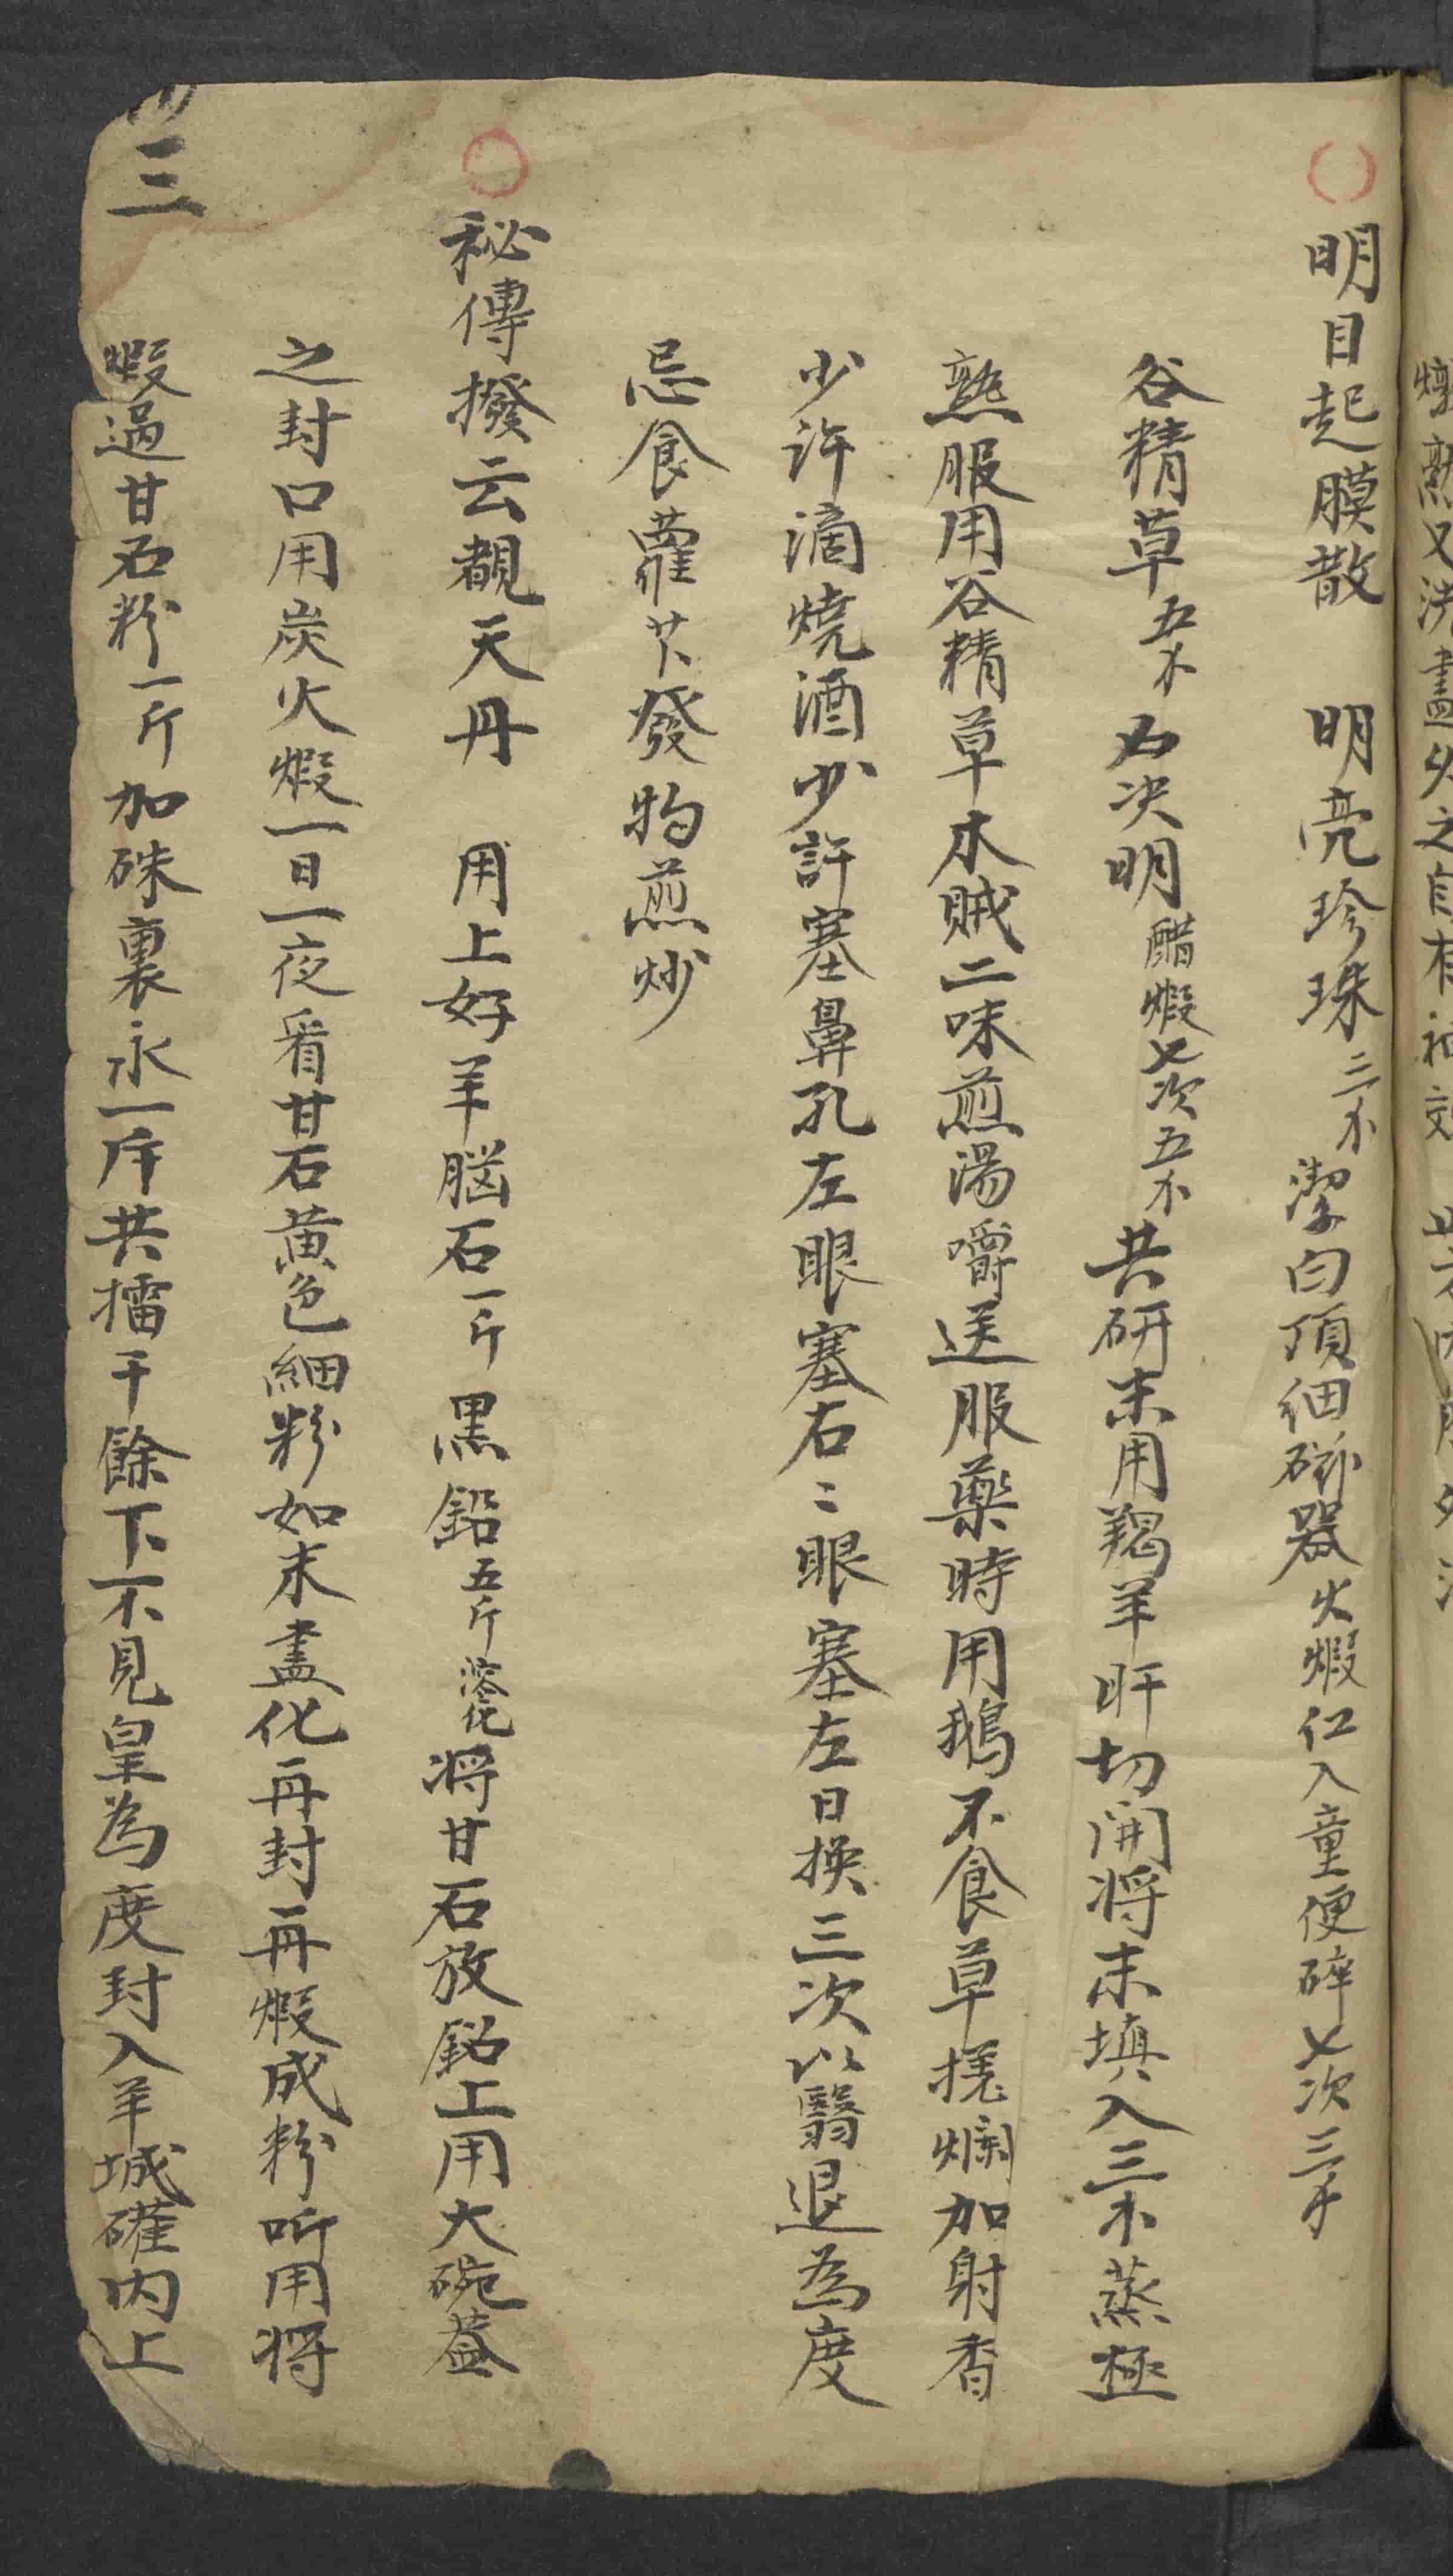 明目起膜散 明亮珍珠三小 潔白頂細磁器火煅仁入童便碎七次三小
谷精草五小 石决明醋煅七次五小 共研末用羯羊肝切開将末填入三小蒸極
熟服用谷精草木賊二味煎湯嚼送服藥時用鵝不食草搓爛加射香
少許滴燒酒少許塞鼻孔左眼塞右〻眼塞左日换三次以翳退為度
忌食蘿卜發物煎炒
秘傳撥云覩天丹 用上好羊脳石一斤 黒鉛五斤溶化 将甘石放鉛上用大碗蓋
之封口用炭火煅一日一夜看甘石黄色細粉如末盡化再封再煅成粉听用将
煅過甘石粉一斤加硃裏永一斤共擂千餘下不見皇為度封入羊城礶内上
三